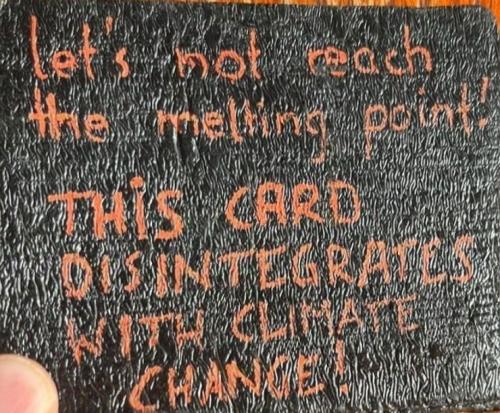 let's not reach
the melting point!
THiS CARD
DISINTEGRATES
WITH CLIMATE
CHANGE!